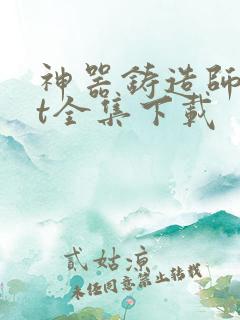 神器铸造師
t全集下載
貳姑涼
未经同意禁止转载